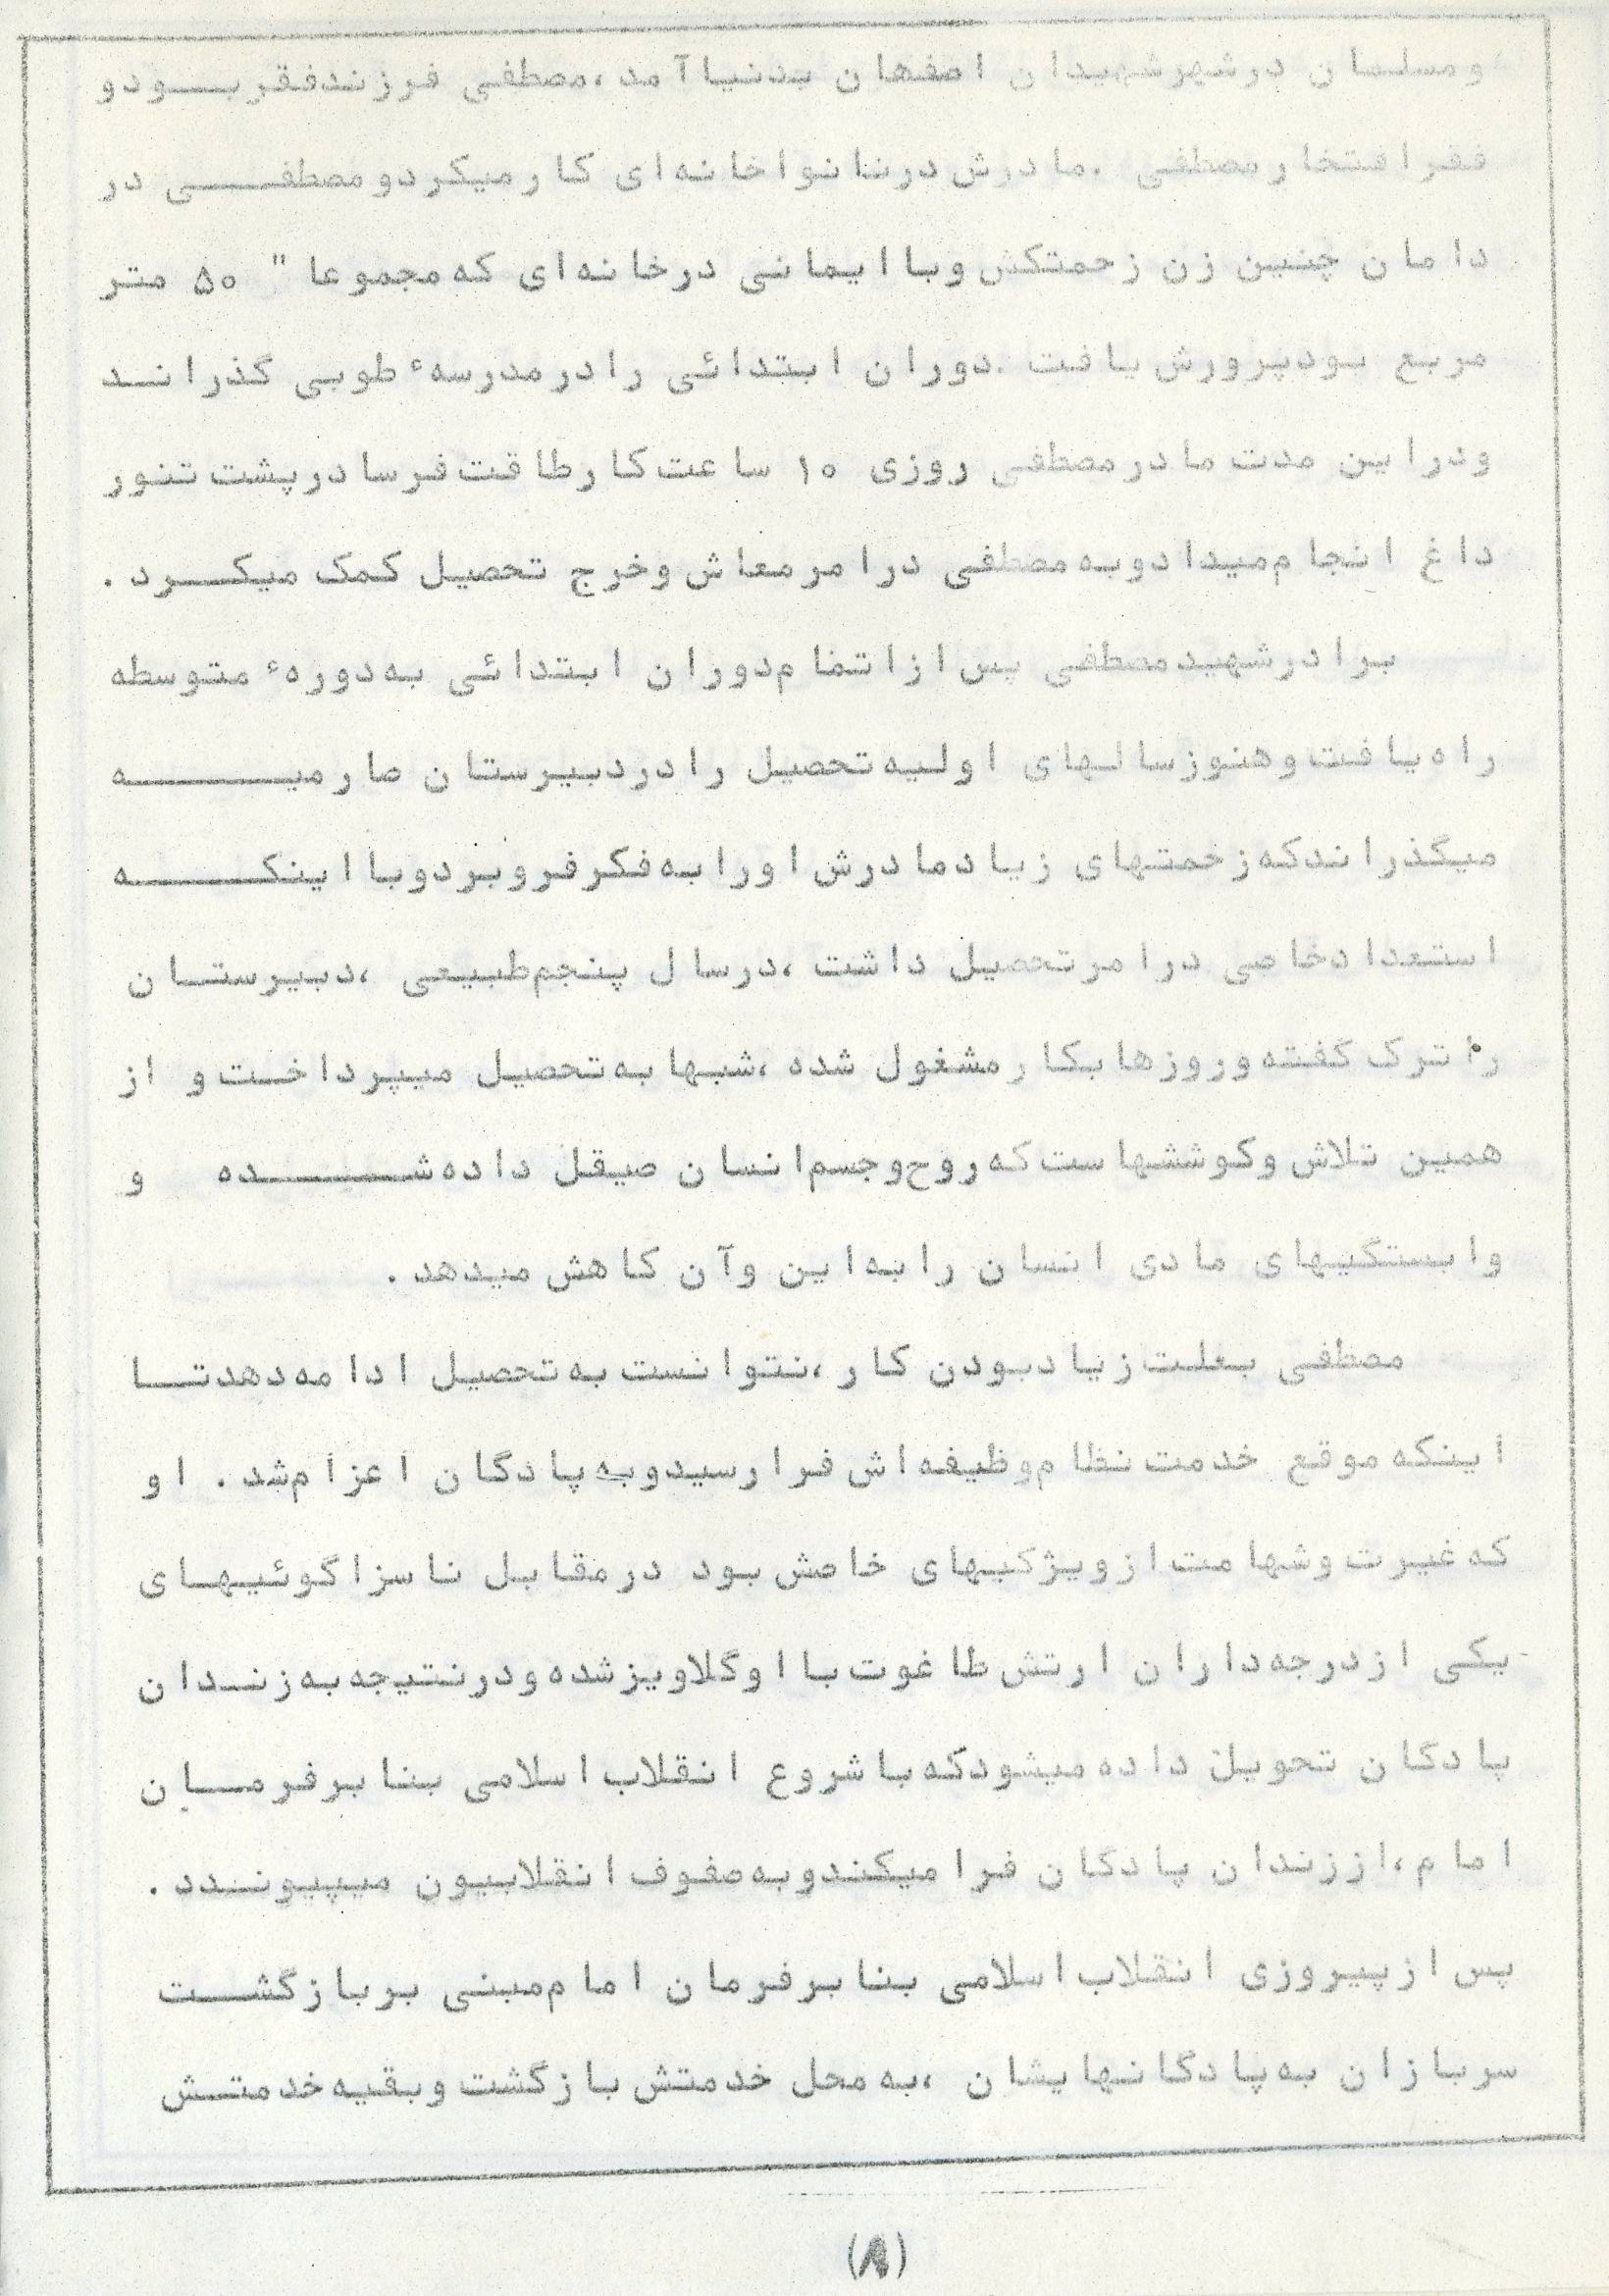 ومسلمان درشهرشهیدان اصفهان بدنیا آمد ،مصطفی فرزندفقربـــودو
فقرافتخارمصطفی .مادرش درنانواخانه‌ای کارمیکردومصطفـــی در
دامان چنین زن زحمتکش وباایمانی درخانه‌ای که مجموعا " ۵۰ متر
مربع بودپرورش یافت .دوران ابتدائی رادرمدرسهء طوبی گذرانـد
ودراین مدت مادرمصطفی روزی ۱۰ ساعت کارطاقت فرسادرپشت تنور
داغ انجام میدادوبه مصطفی درامرمعاش وخرج تحصیل کمک میکـــرد .
برادرشهیدمصطفی پس ازاتمام دوران ابتدائی به دورهء متوسطه
راه یافت وهنوزسالهای اولیه تحصیل رادردبیرستان صارمیــــه
میگذراندکه زحمتهای زیادمادرش اورابه فکرفروبردوبااینکــــه
استعدادخاصی درامرتحصیل داشت ،درسال پنجم طبیعی ،دبیرستـان
را ترک گفته وروزهابکارمشغول شده ،شبهابه تحصیل میپرداخـت و از
همین تلاش وکوششهاست که روح وجسم انسان صیقل داده شــــده و
وابستگیهای مادی انسان رابه این وآن کاهش میدهد .
مصطفی بعلت زیادبودن کار ،نتوانست به تحصیل ادامه دهدتــا
اینکه موقع خدمت نظام وظیفه‌اش فرارسیدوبه پادگان اعزام شد . او
که غیرت وشهامت ازویژگیهای خاصش بود درمقابل ناسزاگوئیهـای
یکی ازدرجه‌داران ارتش طاغوت بااوگلاویزشده ودرنتیجه به زنـدان
پادگان تحویل داده میشودکه باشروع انقلاب اسلامی بنابرفرمــان
امام ،اززندان پادگان فرار میکندوبه صفوف انقلابیون میپیونـدد .
پس ازپیروزی انقلاب اسلامی بنابرفرمان امام مبنی بربازگشـــت
سربازان به پادگانهایشان ،به محل خدمتش بازگشت وبقیه خدمتـش
(۸)